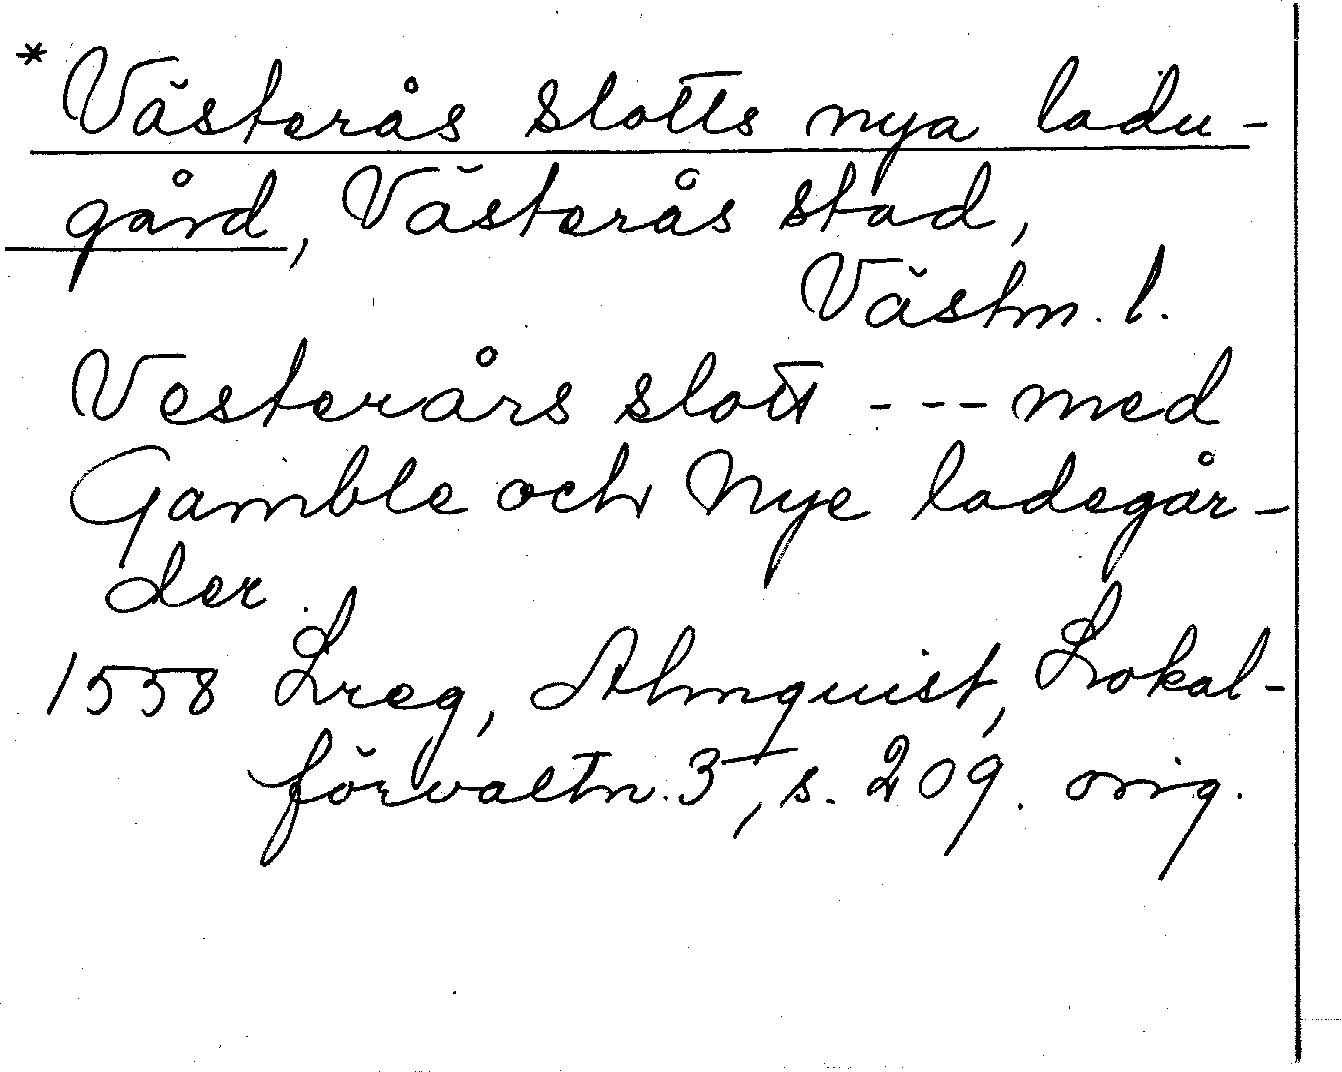 * Västerås slotts nya ladu-
gård, Västerås stad,
Västm. l.
Vesterårs slott --- med
Gamble och Nye ladegår-
der
1558 Lreg, Almquist, Lokal-
förvaltn. 3, s. 209. orig.